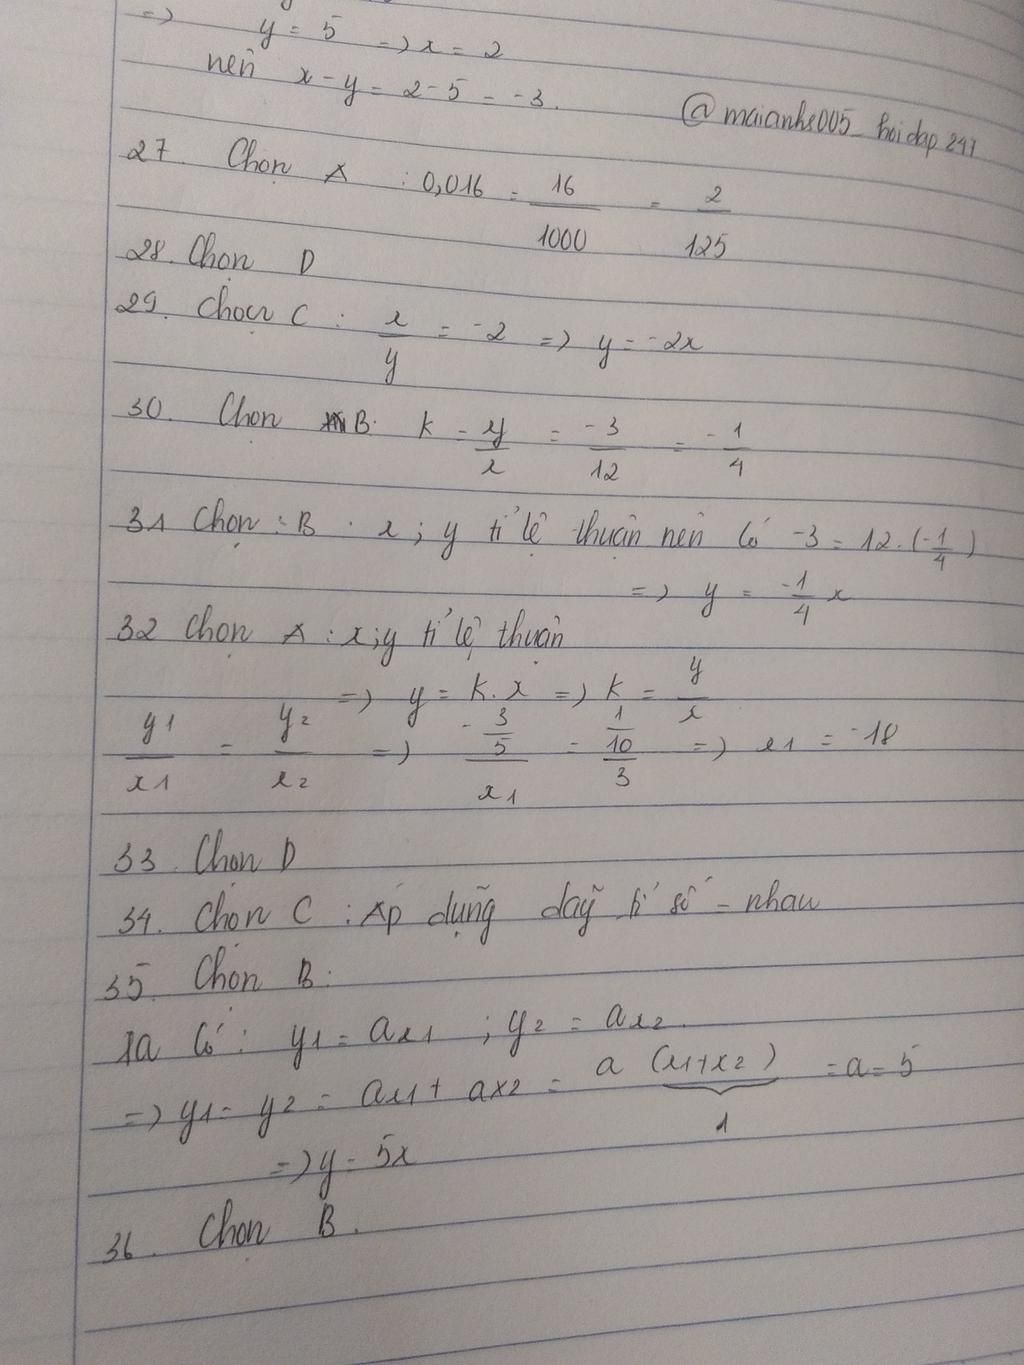 => y = 5 => x = 2
nên x - y = 2 - 5 = -3.
@maianhs005_hoidap247
27. Chọn A : 0,016 = 16/1000 = 2/125
28. Chọn D
29. Chọn C : x/y = -2 => y = -2x
30. Chọn B. k = y/x = -3/12 = -1/4
31 Chọn : B . x ; y tỉ lệ thuận nên có -3 = 12.(-1/4)
=> y = -1/4 x
32 Chọn A : x;y tỉ lệ thuận
=> y = k.x => k = y/x
y1/x1 = y2/x2 => (-3/5)/x1 = (1/10)/3 => x1 = -18
33. Chọn D
34. Chọn C : Áp dụng dãy tỉ số = nhau
35. Chọn B :
Ta có : y1 = ax1 ; y2 = ax2.
=> y1 - y2 = ax1 + ax2 = a (x1+x2) = a = 5
1
=> y = 5x
36. Chọn B.